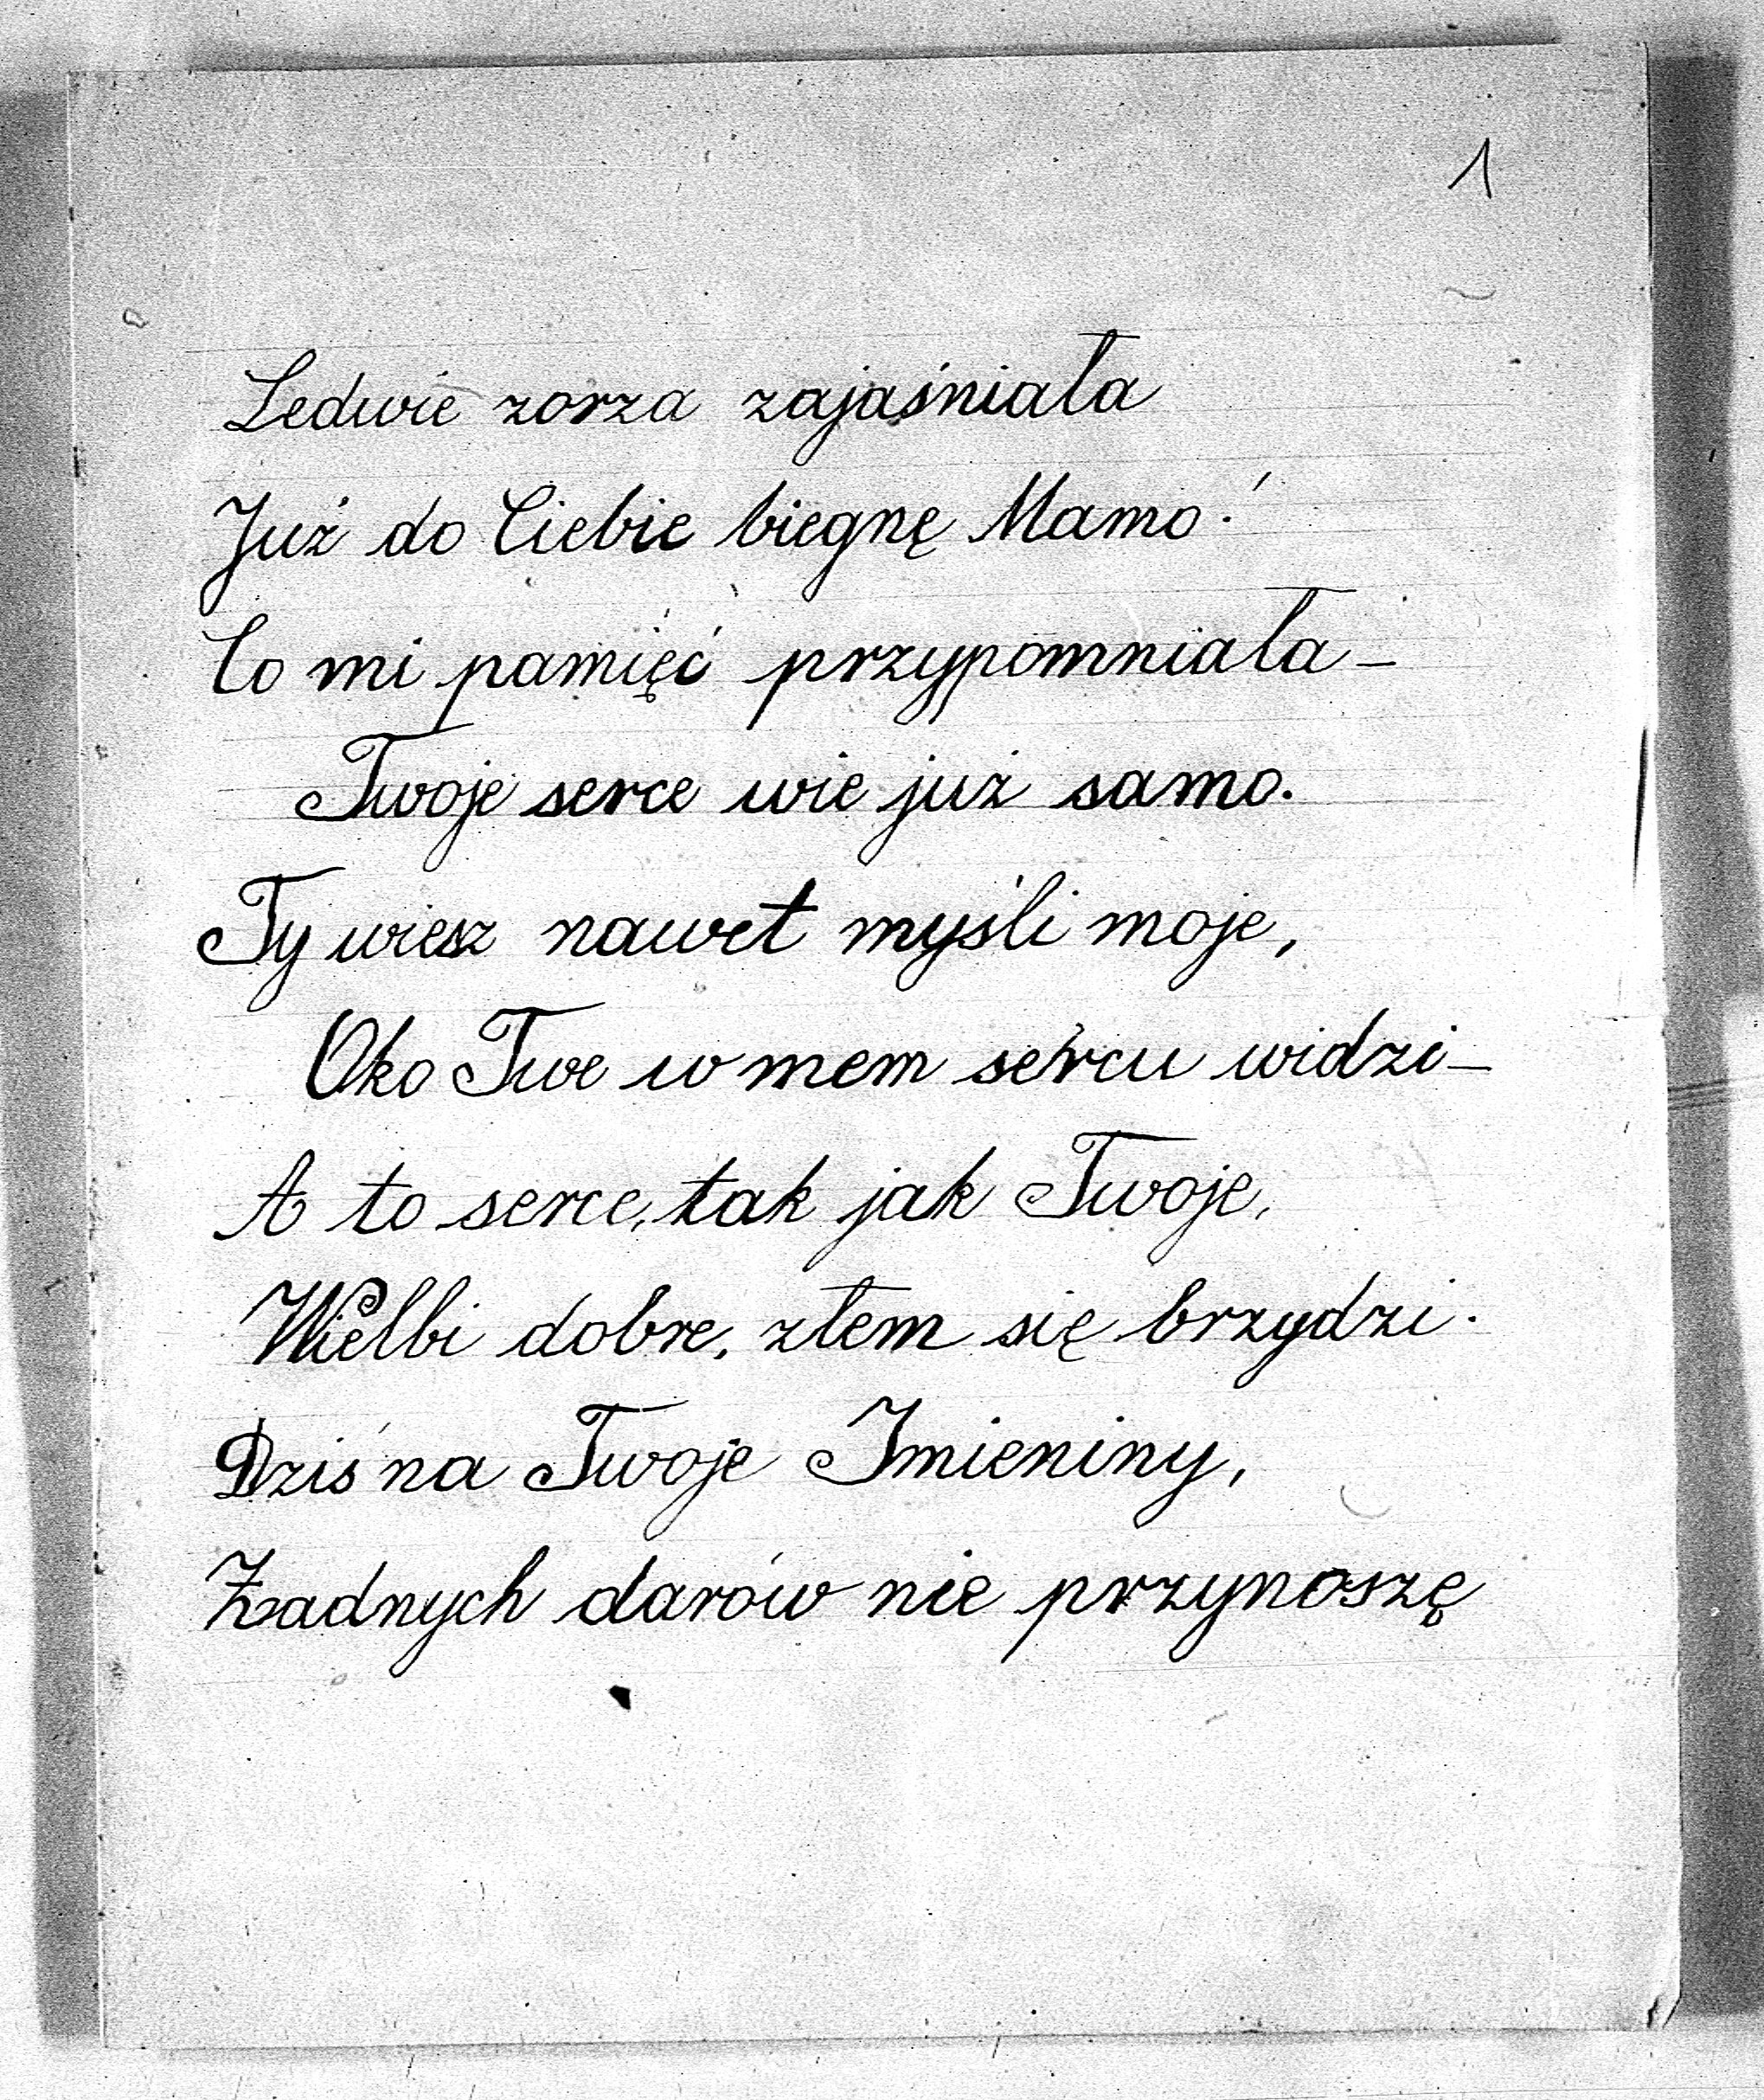 1
Ledwie zorza zajaśniała
Już do Ciebie biegnę Mamo!
Co mi pamięć przypomniała –
Twoje serce wie już samo.
Ty wiesz nawet myśli moje,
Oko Twe w mem sercu widzi –
A to serce, tak jak Twoje,
Wielbi dobre, złem się brzydzi.
Dziś na Twoje Imieniny,
Żadnych darów nie przynoszę